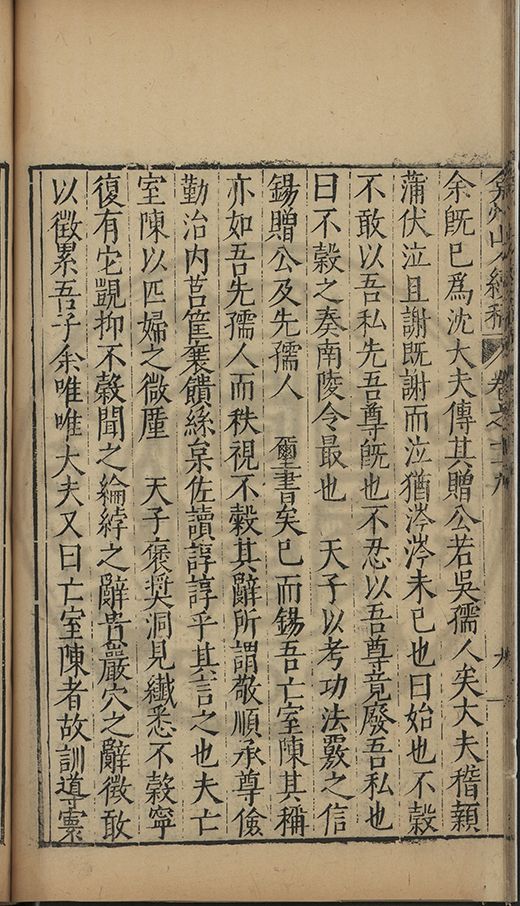 弇州山人續稿 卷之七十九 九
余既已爲沈大夫傳其贈公若吳孺人矣大夫稽顙
蒲伏泣且謝既謝而泣猶涔涔未已也曰始也不穀
不敢以吾私先吾尊既也不忍以吾尊竟廢吾私也
曰不穀之奏南陵令最也 天子以考功法覈之信
錫贈公及先孺人 璽書矣已而錫吾亡室陳其稱
亦如吾先孺人而秩視不穀其辭所謂敬順承尊儉
勤治內莒筐襄饋絲枲佐讀諄諄乎其言之也夫亡
室陳以匹婦之微厪 天子褒奨洞見纖悉不穀寧
復有它覬抑不穀聞之綸綍之辭貴嚴穴之辭徵敢
以徵累吾子余唯唯大夫又曰亡室陳者故訓導寰